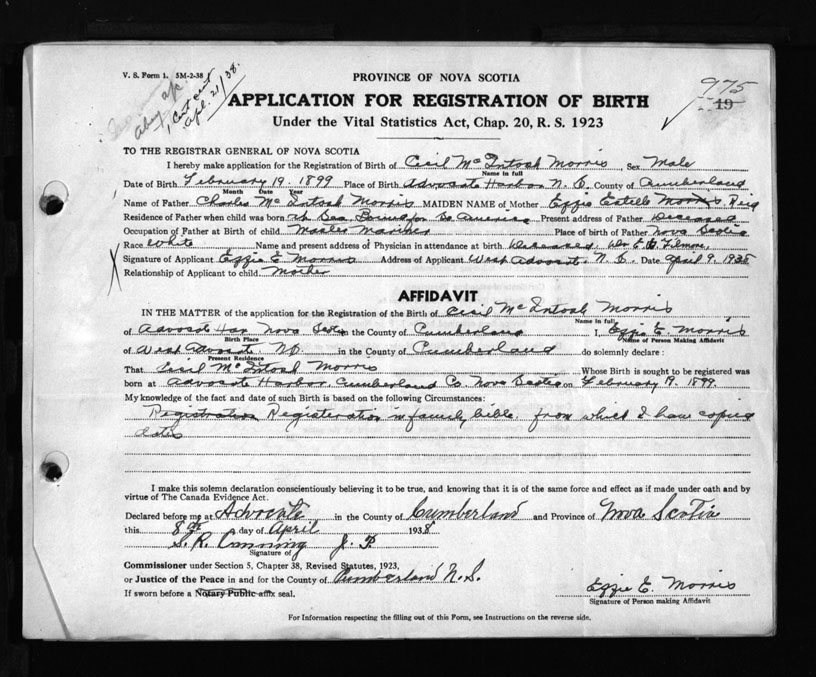 V. S. Form 1. 5M-2-38
1 Cert sent
Apl. 21/38.
975
19
PROVINCE OF NOVA SCOTIA
APPLICATION FOR REGISTRATION OF BIRTH
Under the Vital Statistics Act, Chap. 20, R. S. 1923
TO THE REGISTRAR GENERAL OF NOVA SCOTIA
I hereby make application for the Registration of Birth of Cecil Mc Intosh Morris Sex Male
Name in full
Date of Birth February 19. 1899 Place of Birth Advocate Harbor N. S. County of Cumberland
Month Date Year
Name of Father Charles Mc Intosh Morris MAIDEN NAME of Mother Ezzie Estelle Morris Reid
Residence of Father when child was born At Sea Bound for So America Present address of Father Deceased
Occupation of Father at Birth of child Master Mariner Place of birth of Father Nova Scotia
Race White Name and present address of Physician in attendance at birth Deceased, Filmore,
Signature of Applicant Ezzie E Morris Address of Applicant West Advocate N. S. Date April 9. 1938
Relationship of Applicant to child Mother
AFFIDAVIT
IN THE MATTER of the application for the Registration of the Birth of Cecil Mc Intosh Morris
Name in full
of Advocate Har Nova Scotia in the County of Cumberland I, Ezzie E Morris
Birth Place Name of Person Making Affidavit
of West Advocate. NS. in the County of Cumberland do solemnly declare:
Present Residence
That Cecil Mc Intosh Morris Whose Birth is sought to be registered was
born at Advocate Harbor, Cumberland Co Nova Scotia on February 19. 1899.
My knowledge of the fact and date of such Birth is based on the following Circumstances:
Registration Registeration in family bible from which I have copied
dates
I make this solemn declaration conscientiously believing it to be true, and knowing that it is of the same force and effect as if made under oath and by
virtue of The Canada Evidence Act.
Declared before me at Advocate in the County of Cumberland and Province of Nova Scotia
this 8th day of April 1938
S. R. Canning J. P.
Signature of
Commissioner under Section 5, Chapter 38, Revised Statutes, 1923,
or Justice of the Peace in and for the County of Cumberland N.S.
If sworn before a Notary Public affix seal.
Ezzie E. Morris
Signature of Person making Affidavit
For Information respecting the filling out of this Form, see Instructions on the reverse side.